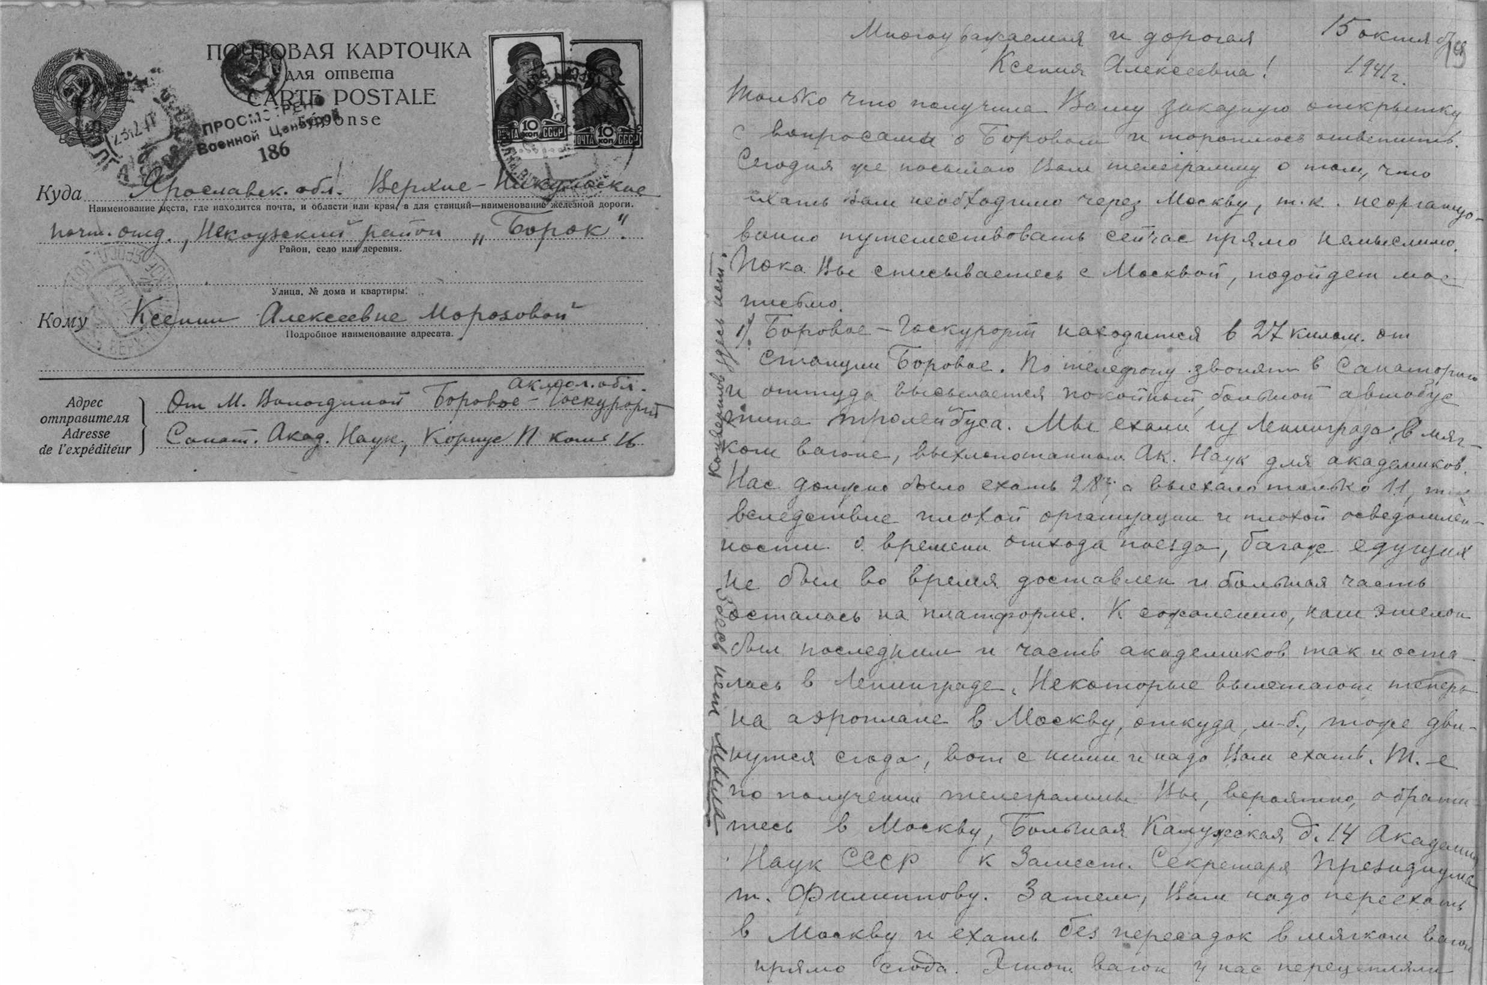 ПОЧТОВАЯ КАРТОЧКА
для ответа
CARTE POSTALE
Réponse
ПРОСМОТРЕНО
Военной Цензурой
186
ПОЧТА 10 коп СССР
ПОЧТА 10 коп СССР
Куда Ярославск. обл. Верхне-Никульское
Наименование места, где находится почта, и области или края, а для станций—наименование железной дороги.
почт. отд., Некоузский район „Борок“.
Район, село или деревня.
Улица, № дома и квартиры.
Кому Ксении Алексеевне Морозовой
Подробное наименование адресата.
Адрес
отправителя
Adresse
de l'expéditeur
акмол. обл.
От М. Вологдиной Боровое-Госкурорт
Санат. Акад. Наук, Корпус II комн 16
15 октября
19
Многоуважаемая и дорогая
Ксения Алексеевна! 1941 г.
Только что получила Вашу заказную открытку
с вопросами о Боровом и тороплюсь ответить.
Сегодня же посылаю Вам телеграмму о том, что
ехать Вам необходимо через Москву, т.к. неорганизо-
ванно путешествовать сейчас прямо немыслимо.
Пока Вы списываетесь с Москвой, подойдет мое
письмо.
1) Боровое-Госкурорт находится в 27 килом. от
станции Боровое. По телефону звонят в Санаторию
и оттуда высылается покойный, большой автобус
типа тролейбуса. Мы ехали из Ленинграда в мяг-
ком вагоне, выхлопотанном Ак. Наук для академиков.
Нас должно было ехать 28, а выехало только 11,
вследствие плохой организации и плохой осведомлен-
ности о времени отхода поезда, багаж едущих
не был во время доставлен и большая часть
осталась на платформе. К сожалению, наш эшелон
был последним и часть академиков так и оста-
лась в Ленинграде. Некоторые вылетают теперь
на аэроплане в Москву, откуда, м.б., тоже дви-
нутся сюда, вот с ними и надо Вам ехать. Т.е
по получении телеграммы Вы, вероятно, обрати-
тесь в Москву, Большая Калужская д. 14 Академия
Наук СССР к Замест. Секретаря Президиума
т. Филиппову. Затем, Вам надо переехать
в Москву и ехать без пересадок в мягком вагоне
прямо сюда. Этот вагон у нас перецепляли
Здесь нет мыла
конвертов здесь нет.